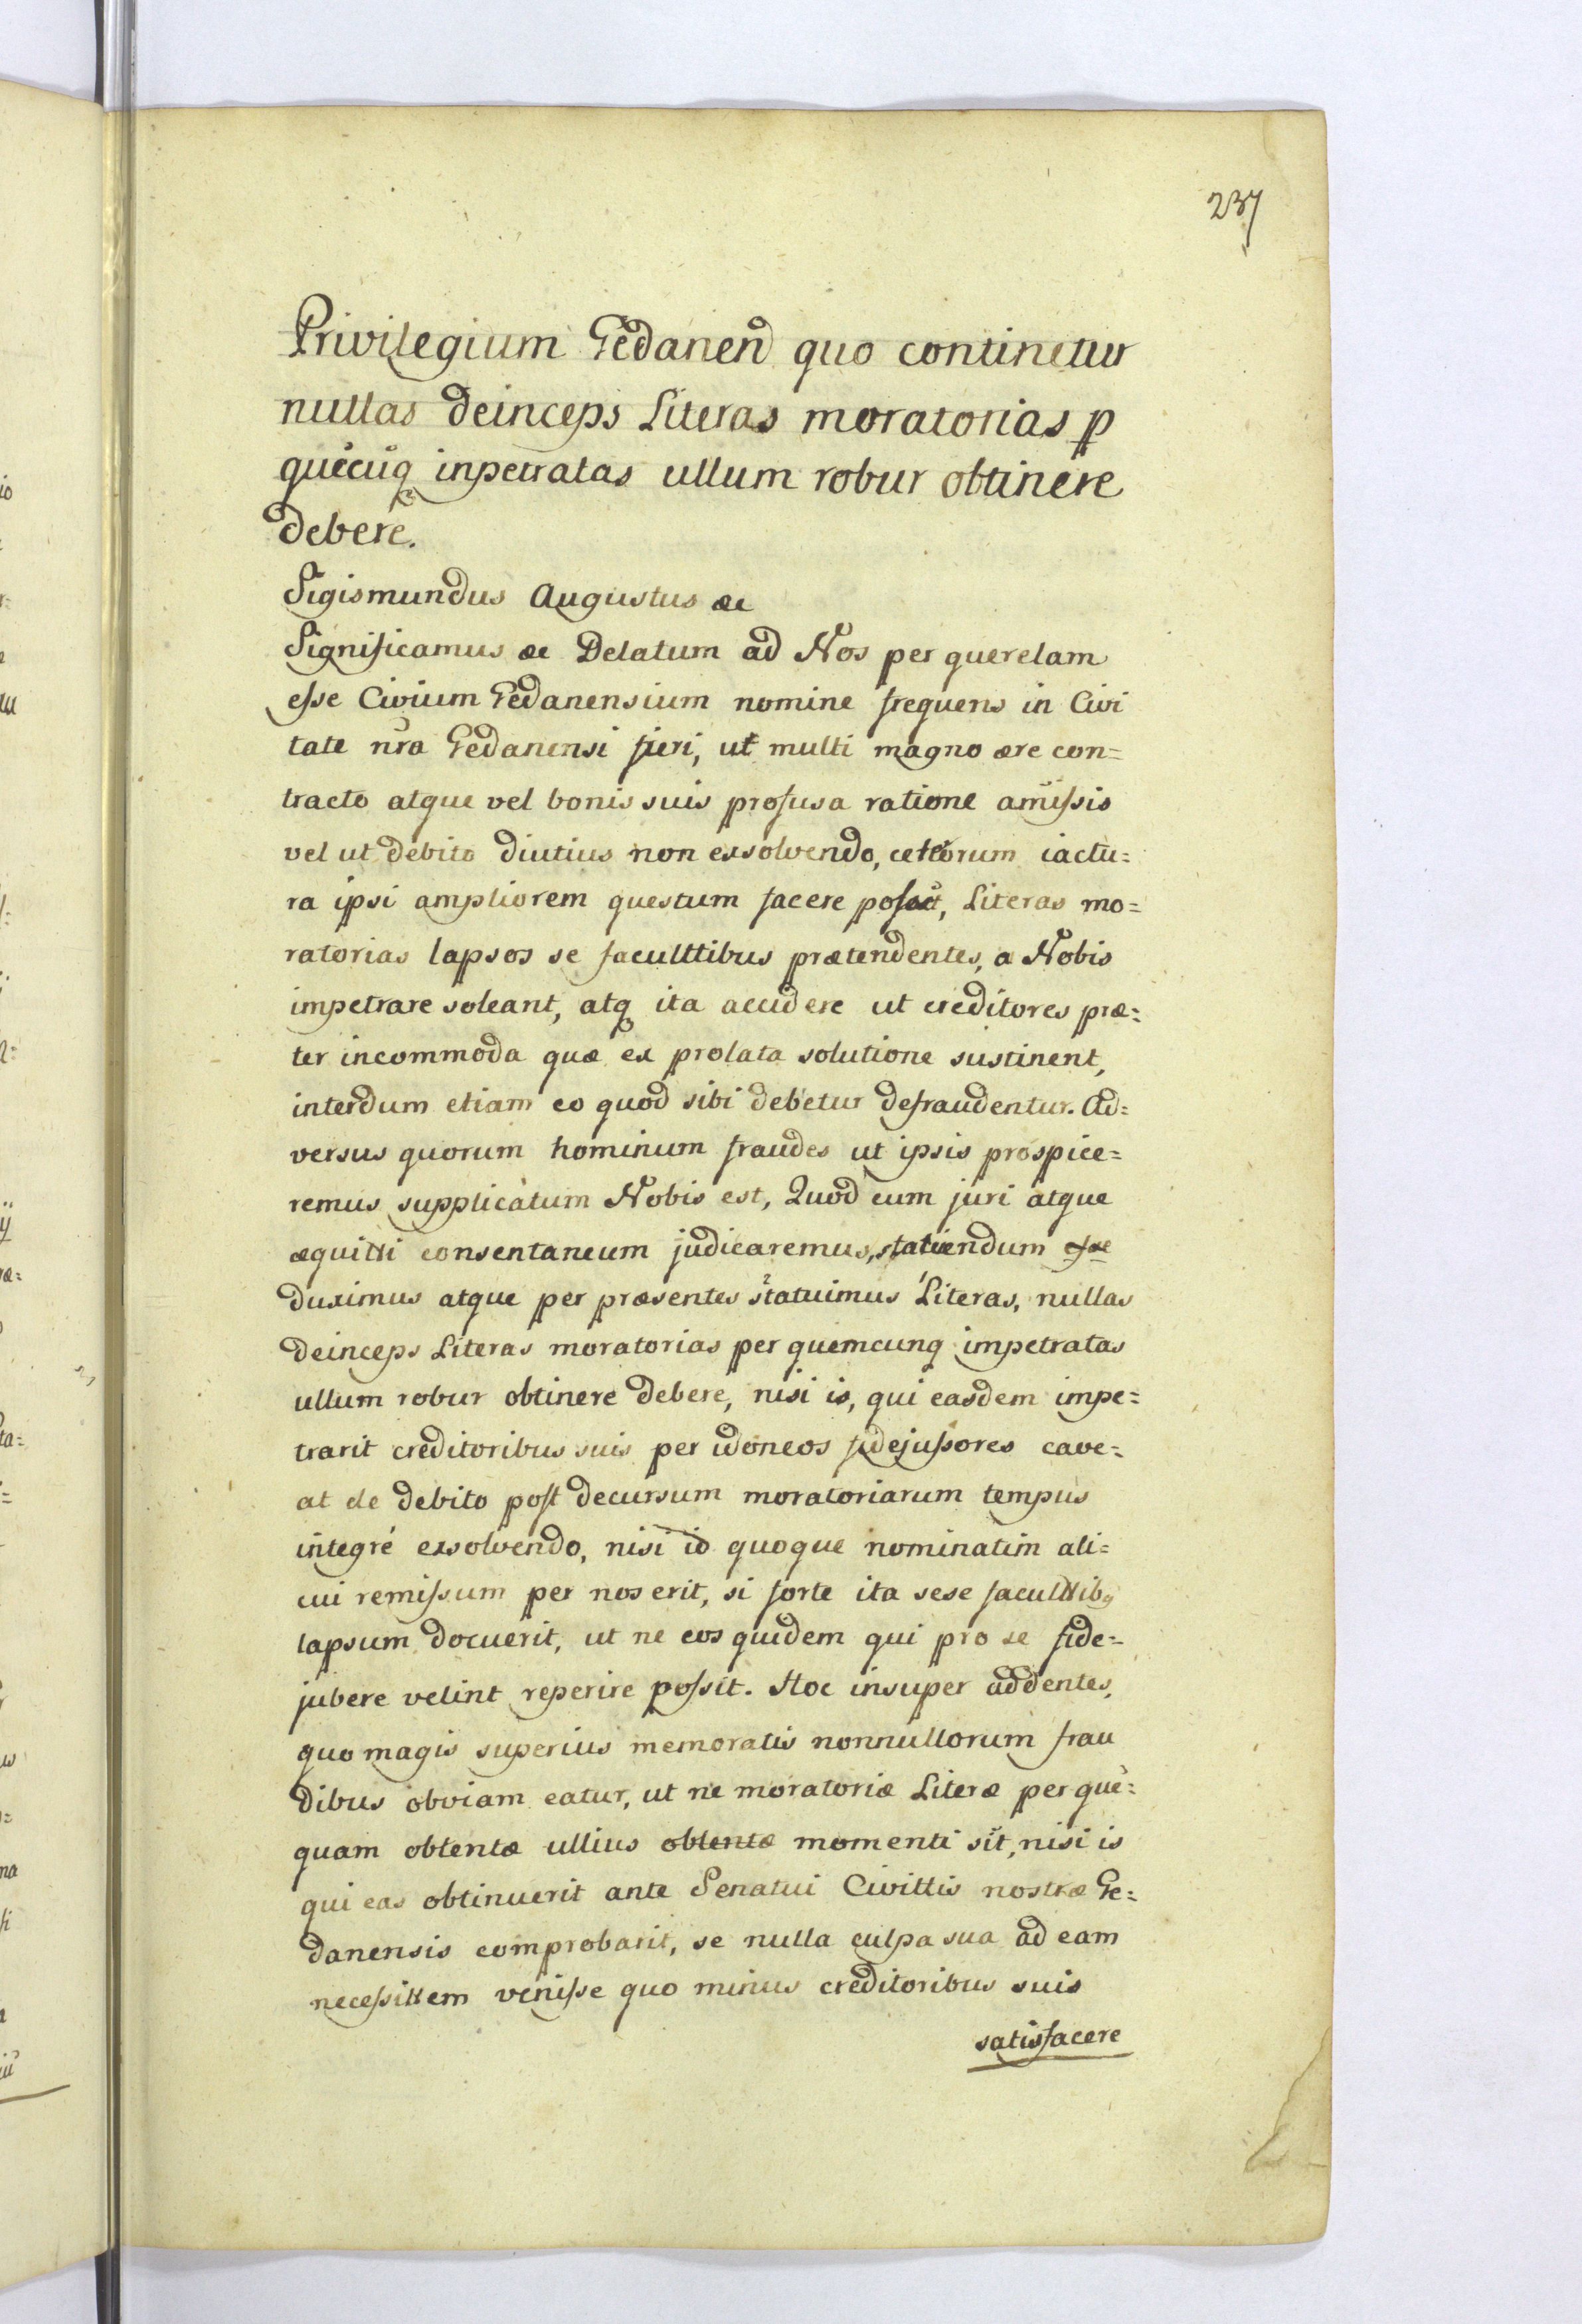 237
Privilegium Gedanen̄ quo continetur
nullas deinceps Literas moratorias ꝑ
quēcūq inpetratas ullum robur obtinere
debere.
Sigismundus Augustus æc
Significamus æc Delatum ad Nos per querelam
eſse Civium Gedanensium nomine frequens in Civi
tate nr̄a Gedanensi fieri, ut multi magno ære con=
tracto atque vel bonis suis profusa ratione amiſsis
vel ut debito diutius non exsolvendo, ceterorum iactu=
ra ipsi ampliorem questum facere poſsīt, Literas mo=
ratorias lapsos se faculttibus prætendentes, a Nobis
impetrare soleant, atq ita accidere ut creditores præ=
ter incommoda quæ ex prolata solutione sustinent,
interdum etiam eo quod sibi debetur defraudentur. Ad=
versus quorum hominum fraudes ut ipsis prospice=
remus supplicatum Nobis est, Quod cum juri atque
æquitti consentaneum judicaremus, statuendum eſse
duximus atque per præsentes statuimus Literas, nullas
deinceps Literas moratorias per quemcunq impetratas
ullum robur obtinere debere, nisi is, qui easdem impe=
trarit creditoribus suis per idoneos fidejuſsores cave=
at de debito poſt decursum moratoriarum tempus
integré exsolvendo, nisi id quoque nominatim ali=
cui remiſsum per nos erit, si forte ita sese faculttibq
lapsum docuerit, ut ne eos quidem qui pro se fide=
jubere velint reperire poſsit. Hoc insuper addentes,
quo magis superius memoratis nonnullorum frau
dibus obviam eatur, ut ne moratoriæ Literæ per quē=
quam obtentæ ullius obtentæ momenti sīt, nisi is
qui eas obtinuerit ante Senatui Civittis nostræ Ge=
danensis comprobarit, se nulla culpa sua ad eam
neceſsittem veniſse quo minus creditoribus suis
satisfacere